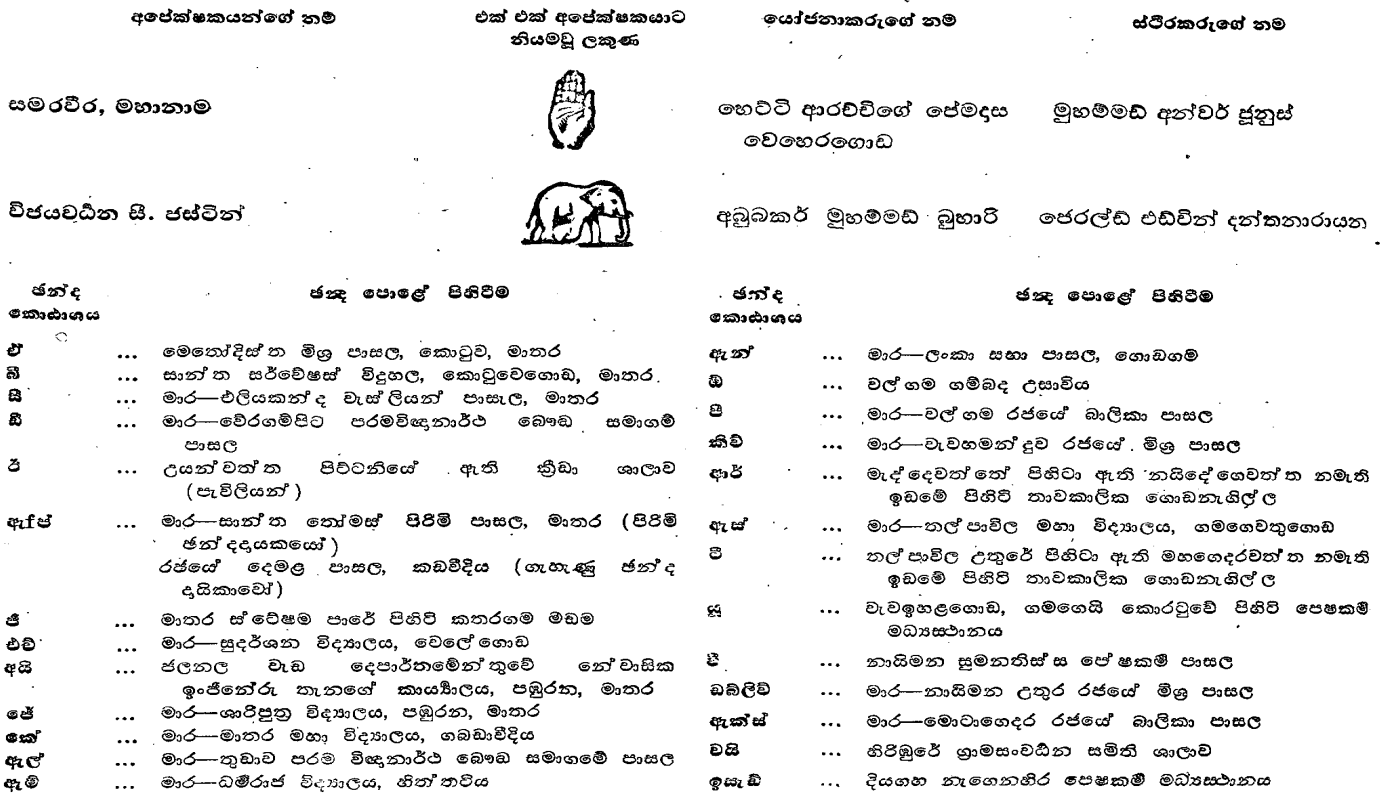 අපේක්ෂකයන්ගේ නම්
එක් එක් අපේක්ෂකයාට නියමවූ ලකුණ
යෝජනාකරුගේ නම
ස්ථිරකරුගේ නම
සමරවීර, මහානාම
හෙට්ටි ආරච්චිගේ පේමදාස වෙහෙරගොඩ
මුහම්මඩ් අන්වර් ජූනුස්
විජයවර්‍ධන සී. ජස්ටින්
අබුබකර් මුහම්මඩ් බුහාරි
ජෙරල්ඩ් එඩ්වින් දන්තනාරායන
ඡන්ද කොඨාශය
ඡන්ද පොළේ පිහිටීම
ඒ ... මෙතෝදිස්ත මිශ්‍ර පාසල, කොටුව, මාතර
බී ... සාන්ත සර්වේෂස් විදුහල, කොටුවෙගොඩ, මාතර.
සී ... මාර—එලියකන්ද වැස්ලියන් පාසැල, මාතර
ඩී ... මාර—වේරගම්පිට පරමවිඥානාර්ථ බෞද්ධ සමාගම්
පාසල
ඊ ... උයන්වත්ත පිට්ටනියේ ඇති ක්‍රීඩා ශාලාව
(පැවිලියන්)
ඇෆ් ... මාර—සාන්ත තෝමස් පිරිමි පාසල, මාතර (පිරිමි
ඡන්දදායකයෝ)
රජයේ දෙමළ පාසල, කඩවීදිය (ගැහැණු ඡන්ද
දායිකාවෝ)
ජී ... මාතර ස්ටේෂම පාරේ පිහිටි කතරගම මඩම
එච් ... මාර—සුදර්ශන විද්‍යාලය, වෙලේගොඩ
අයි ... ජලනල වැඩ දෙපාර්තමේන්තුවේ නේවාසික
ඉංජිනේරු තැනගේ කාර්‍ය්‍යාලය, පඹුරන, මාතර
ජේ ... මාර—ශාරිපුත්‍ර විද්‍යාලය, පඹුරන, මාතර
කේ ... මාර—මාතර මහා විද්‍යාලය, ගබඩාවීදිය
ඇල් ... මාර—තුඩාව පරම විඥානාර්ථ බෞද්ධ සමාගමේ පාසල
ඇම් ... මාර—ධර්‍මරාජ විද්‍යාලය, හිත්තටිය
ඡන්ද කොඨාශය
ඡන්ද පොළේ පිහිටීම
ඇන් ... මාර—ලංකා සභා පාසල, ගොඩගම
ඕ ... වල්ගම ගම්බද උසාවිය
පී ... මාර—වල්ගම රජයේ බාලිකා පාසල
කිව් ... මාර—වැවහමන්දුව රජයේ මිශ්‍ර පාසල
ආර් ... මැද්දෙවත්තේ පිහිටා ඇති නයිදේගෙවත්ත නමැති
ඉඩමේ පිහිටි තාවකාලික ගොඩනැගිල්ල
ඇස් ... මාර—තල්පාවිල මහා විද්‍යාලය, ගමගෙවතුගොඩ
ටී ... තල්පාවිල උතුරේ පිහිටා ඇති මහගෙදරවත්ත නමැති
ඉඩමේ පිහිටි තාවකාලික ගොඩනැගිල්ල
යූ ... වැවඉහළගොඩ, ගමගෙයි කොරටුවේ පිහිටි පේෂකර්‍ම
මධ්‍යස්ථානය
වී ... නායිම්න සුමනතිස්ස පේෂකර්‍ම පාසල
ඩබ්ලිව් ... මාර—නායිමන උතුර රජයේ මිශ්‍ර පාසල
ඇක්ස් ... මාර—මොටාගෙදර රජයේ බාලිකා පාසල
වයි ... හිරිඹුරේ ග්‍රාමසංවර්‍ධන සමිති ශාලාව
ඉසැඩ් ... දියගහ නැගෙනහිර පේෂකර්‍ම මධ්‍යස්ථානය